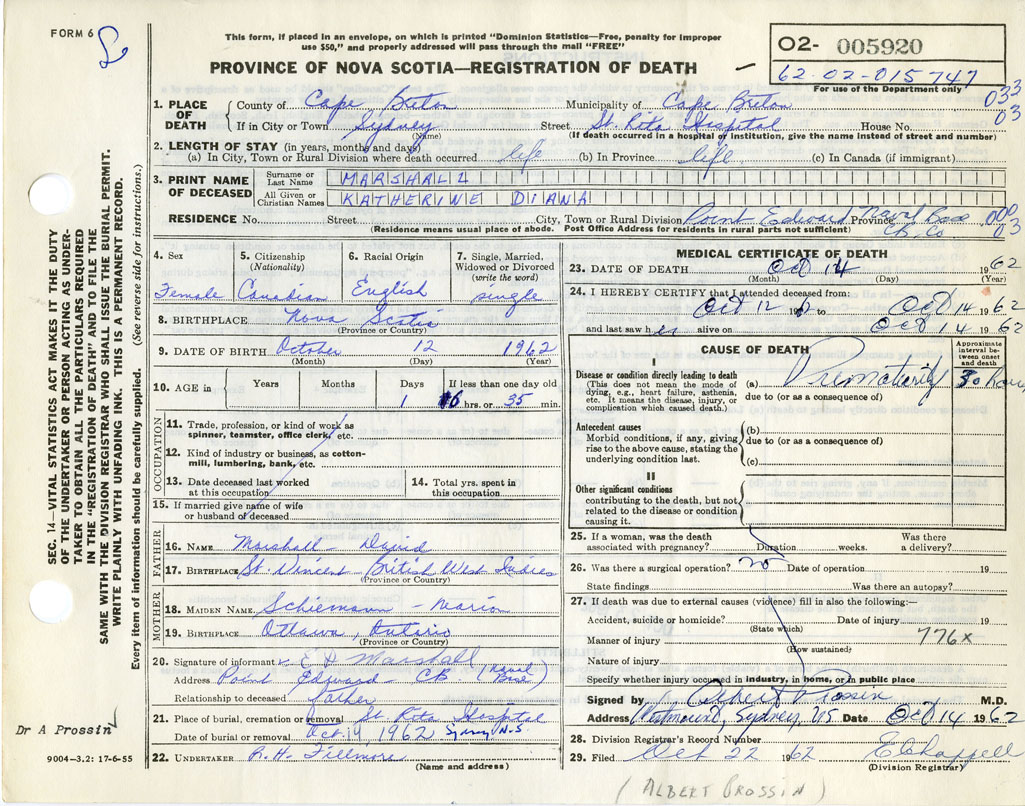 FORM 6
This form, if placed in an envelope, on which is printed "Dominion Statistics—Free, penalty for improper
use $50," and properly addressed will pass through the mail "FREE"
PROVINCE OF NOVA SCOTIA—REGISTRATION OF DEATH
02- 005920
62-02-015747
For use of the Department only
033
03
1. PLACE OF DEATH
County of Cape Breton Municipality of Cape Breton
If in City or Town Sydney Street St. Rita Hospital House No.
(Name) (If death occurred in a hospital or institution, give the name instead of street and number)
2. LENGTH OF STAY (in years, months and days)
(a) In City, Town or Rural Division where death occurred life (b) In Province life (c) In Canada (if immigrant)
3. PRINT NAME OF DECEASED
Surname or Last Name MARSHALL
All Given or Christian Names KATHERINE DIANA
RESIDENCE No. Street City, Town or Rural Division Point Edward Naval Base Province CB. Co
000
03
(Residence means usual place of abode. Post Office Address for residents in rural parts not sufficient)
4. Sex
Female
5. Citizenship (Nationality)
Canadian
6. Racial Origin
English
7. Single, Married, Widowed or Divorced (write the word)
single
8. BIRTHPLACE Nova Scotia
(Province or Country)
9. DATE OF BIRTH October 12 1962
(Month) (Day) (Year)
10. AGE in Years Months Days If less than one day old
1 6 hrs. or 35 min.
OCCUPATION
11. Trade, profession, or kind of work as
spinner, teamster, office clerk, etc.
12. Kind of industry or business, as cotton-
mill, lumbering, bank, etc.
13. Date deceased last worked
at this occupation
14. Total yrs. spent in
this occupation
15. If married give name of wife
or husband of deceased
FATHER
16. NAME Marshall - David
17. BIRTHPLACE St. Vincent British West Indies
(Province or Country)
MOTHER
18. MAIDEN NAME Schiemann - Marion
19. BIRTHPLACE Ottawa, Ontario
(Province or Country)
20. Signature of informant x E D Marshall
Address Point Edward - CB (Naval Base)
Relationship to deceased father
21. Place of burial, cremation or removal St. Rita Hospital
Date of burial or removal Oct 14 1962 Sydney N.S.
22. UNDERTAKER R. H. Fillmore
(Name and address)
MEDICAL CERTIFICATE OF DEATH
23. DATE OF DEATH Oct 14 1962
(Month) (Day) (Year)
24. I HEREBY CERTIFY that I attended deceased from:
Oct 12 19 to Oct 14 1962
and last saw her alive on Oct 14 1962
CAUSE OF DEATH
Approximate interval be-tween onset and death
I
Disease or condition directly leading to death
(This does not mean the mode of
dying, e.g., heart failure, asthenia,
etc. It means the disease, injury, or
complication which caused death.)
(a) Prematurity 30 hours
due to (or as a consequence of)
Antecedent causes
Morbid conditions, if any, giving
rise to the above cause, stating the
underlying condition last.
(b)
due to (or as a consequence of)
(c)
II
Other significant conditions
contributing to the death, but not
related to the disease or condition
causing it.
25. If a woman, was the death
associated with pregnancy? Duration weeks. Was there
a delivery?
26. Was there a surgical operation? no Date of operation 19
State findings Was there an autopsy?
27. If death was due to external causes (violence) fill in also the following:
Accident, suicide or homicide? Date of injury 19
(State which)
Manner of injury 776x
(How sustained)
Nature of injury
Specify whether injury occurred in industry, in home, or in public place
Signed by Albert Prossin M.D.
Address Westmount, Sydney, NS Date Oct 14 1962
28. Division Registrar's Record Number
29. Filed Oct 22 1962 E Chappell
(Division Registrar)
(ALBERT PROSSIN)
SEC. 14—VITAL STATISTICS ACT MAKES IT THE DUTY
OF THE UNDERTAKER OR PERSON ACTING AS UNDER-
TAKER TO OBTAIN ALL THE PARTICULARS REQUIRED
IN THE "REGISTRATION OF DEATH" AND TO FILE THE
SAME WITH THE DIVISION REGISTRAR WHO SHALL ISSUE THE BURIAL PERMIT.
WRITE PLAINLY WITH UNFADING INK. THIS IS A PERMANENT RECORD.
Every item of information should be carefully supplied. (See reverse side for instructions.)
Dr A Prossin
9004—3.2: 17-6-55